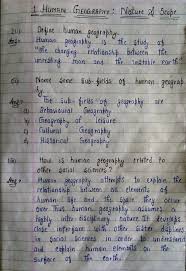 1 Human Geography: Nature & Scope
Q(i) Define human geography.
Ans→ Human geography is the study of
"the changing relationship between the
unresting man and the unstable earth."
(ii) Name some sub-fields of human geography
Ans→ The sub-fields of geography are
a) Behavioural Geography
b) Geography of Leisure
c) Cultural Geography
d) Historical Geography
(iii) How is human geography related to
other social sciences?
Ans→ Human geography attempts to explain the
relationship between all elements of
human life and the space they occur
over. Thus human geography assumes a
highly inter-disciplinary nature. It develops
close interface with other sister
in social sciences in order to understand
and explain human elements on the
surface of the earth.